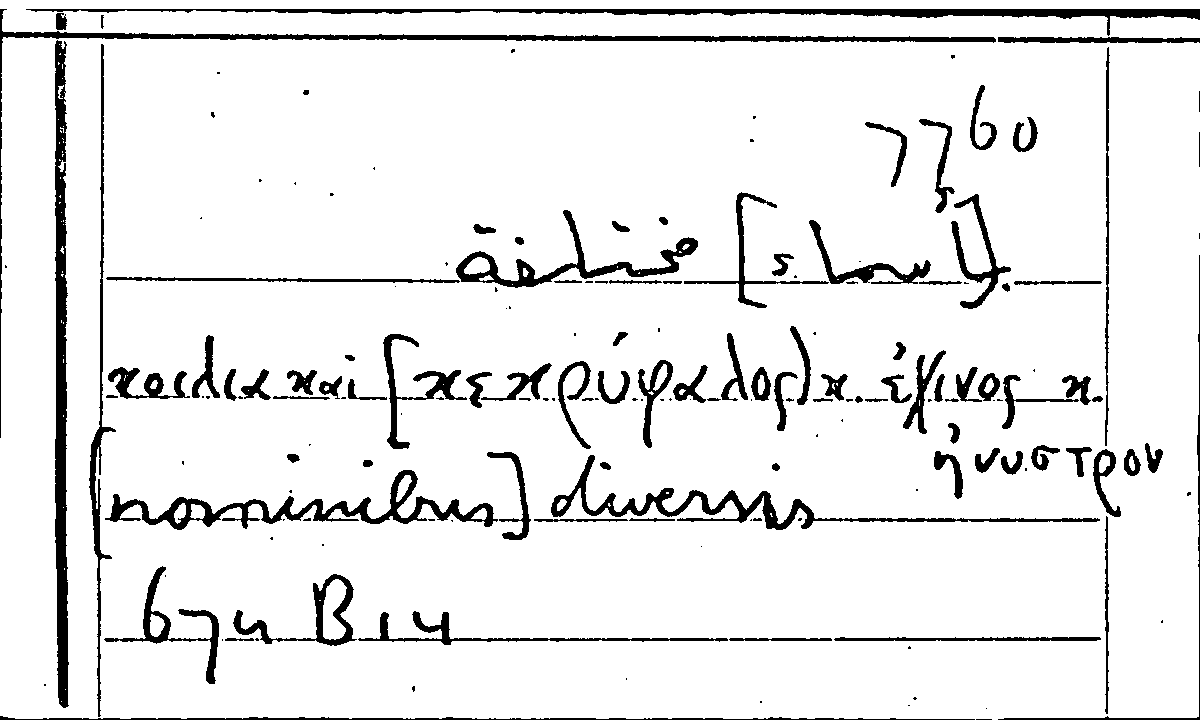 7760
[بأسماء] مختلفة
κοιλια καὶ [κεκρύφαλος) κ. ἐχῖνος κ.
ἤνυστρον
[nominibus] diversis
674 B 14